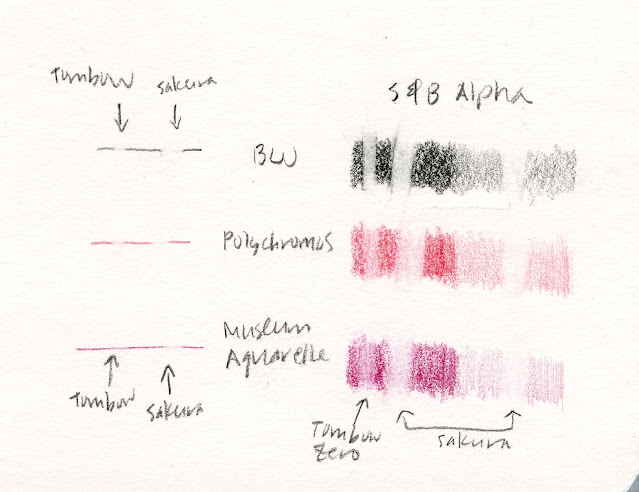 Tombow sakura
S&B Alpha
BW
Polychromos
Museum
Aquarelle
Tombow sakura
Tombow
Zero
sakura